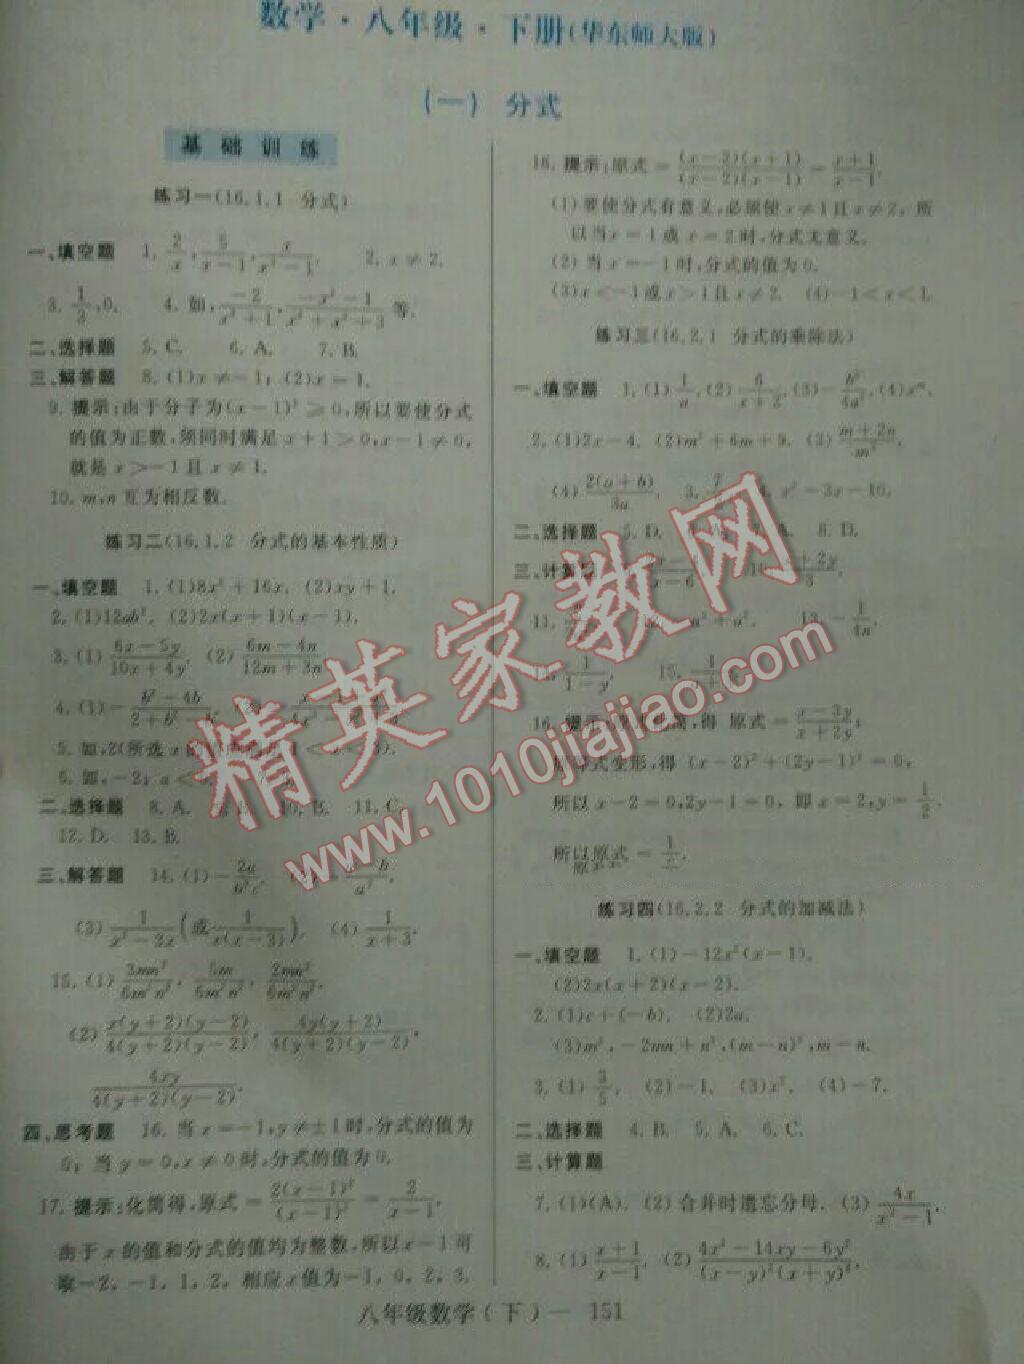 数学·八年级·下册(华东师大版)
(一) 分式
基础训练
练习一(16.1.1 分式)
一、填空题 1. 2/x, 5/(x-1), x/(x²-1). 2. x≠2.
3. 1/3, 0. 4. 如, -2/(x²+1), (-x²-1)/(x²+x²+3) 等.
二、选择题 5. C. 6. A. 7. B.
三、解答题 8. (1)x≠-1; (2)x=1.
9. 提示:由于分子为(x-1)²≥0,所以要使分式
的值为正数,须同时满足x+1>0,x-1≠0,
就是x>-1且x≠1.
10. m,n互为相反数.
练习二(16.1.2 分式的基本性质)
一、填空题 1. (1)8x²+16x. (2)xy+1.
2. (1)12ab². (2)2x(x+1)(x-1).
3. (1) (6x-5y)/(10x+4y). (2) (6m-4n)/(12m+3n)
4. (1)-
5. 如,2(所选x的
6. 如,-2; a<
二、选择题 8. A. 10. B. 11. C.
12. D. 13. B.
三、解答题 14. (1)-2a/(b²c).
(3) 1/(x²-3x) (或 1/(x(x-3))). (4) 1/(x+3).
15. (1) 3mn²/(6m²n²), 5m/(6m²n²), 2mn²/(6m²n²).
(2) x(y+2)(y-2)/(4(y+2)(y-2)), 4y(y+2)/(4(y+2)(y-2)),
4xy/(4(y+2)(y-2)).
四、思考题 16. 当x=-1,y≠±1时,分式的值为
0; 当y=0,x≠0时,分式的值为0.
17. 提示:化简得,原式=2(x-1)²/(x-1)²=2/(x-1).
由于x的值和分式的值均为整数,所以x-1可
取-2,-1,1,2,相应x值为-1,0,2,3.
16. 提示:原式=((x-2)(x+1))/((x-2)(x-1))=(x+1)/(x-1).
(1)要使分式有意义,必须使x≠1且x≠2,所
以当x=1或x=2时,分式无意义.
(2)当x=-1时,分式的值为0.
(3)x<-1或x>1且x≠2. (4)-1<x<1.
练习三(16.2.1 分式的乘除法)
一、填空题 1. (1) 1/a. (2) 6/(x+2). (3)-b²/(4a²). (4)xⁿ.
2. (1)2x-4. (2)m²+6m+9. (3) (m+2n)/m².
(4) 2(a+b)/3a. 3. 7/ 4. x²-3x-10.
二、选择题 5. D. A. 8. D.
三、计算题
11. a²+a². 13. -1/(4n).
1/(1-y). 15.
16. 提示: 得 原式=(x-3y)/(x+2y);
式变形,得 (x-2)²+(2y-1)²=0,
所以x-2=0,2y-1=0, 即x=2,y=1/2.
所以原式=
原式
练习四(16.2.2 分式的加减法)
一、填空题 1. (1)-12x²(x-1).
(2)2x(x+2)(x-2).
2. (1)c+(-b). (2)2a.
(3)m²,-2mn+n²,(m-n)²,m-n.
3. (1) 3/5. (2)-1. (3)x². (4)-7.
二、选择题 4. B. 5. A. 6. C.
三、计算题
7. (1)(A). (2)合并时遗忘分母. (3) 4x/(x²-1).
8. (1) (x+1)/(x-1). (2) (4x²-14xy-6y²)/((x-y)²(x+y)²).
八年级数学(下)— 151
精英家教网
www.1010jiajiao.com